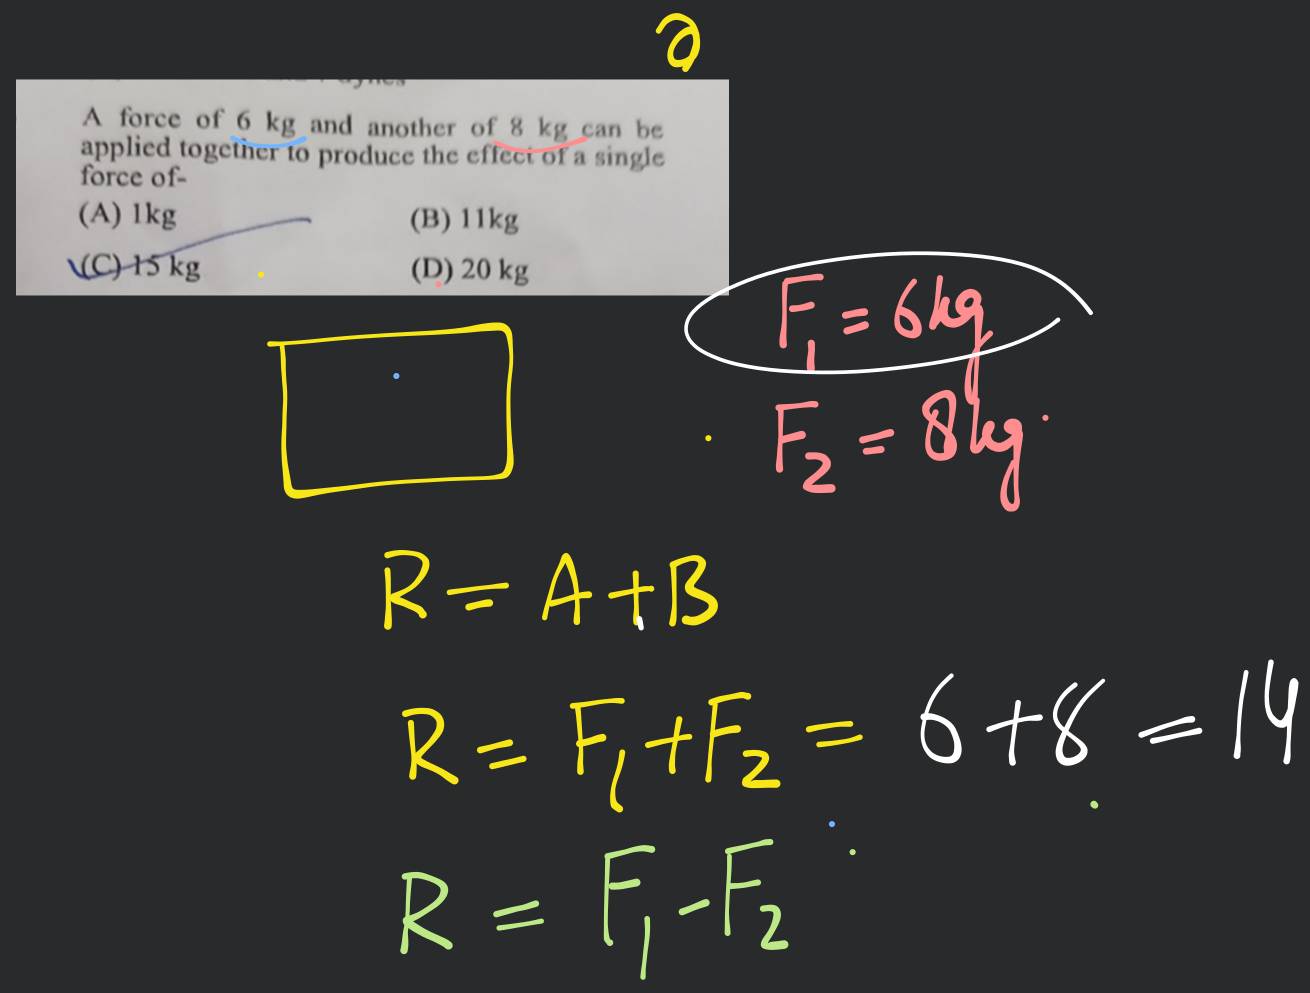 A force of 6 kg and another of 8 kg can be
applied together to produce the effect of a single
force of-
(A) 1kg
(B) 11kg
(C) 15 kg
(D) 20 kg
F₁ = 6kg
F₂ = 8kg
R = A + B
R = F₁ + F₂ = 6 + 8 = 14
R = F₁ - F₂